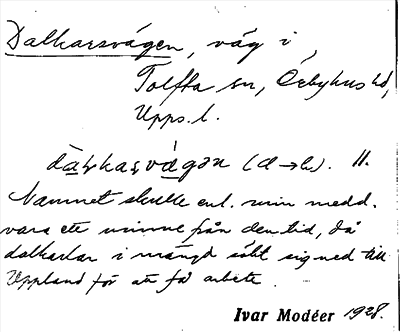 Dalkarsvägen, väg i
Tolfta sn, Örbyhus hd,
Upps. l.
dàḷkaṣvá̱gən (a→ḁ). ll.
Namnet skulle enl. min medd.
vara ett minne från den tid, då
dalkarlar i mängd sökt sig ned till
Uppland för att få arbete.
Ivar Modéer 1928.